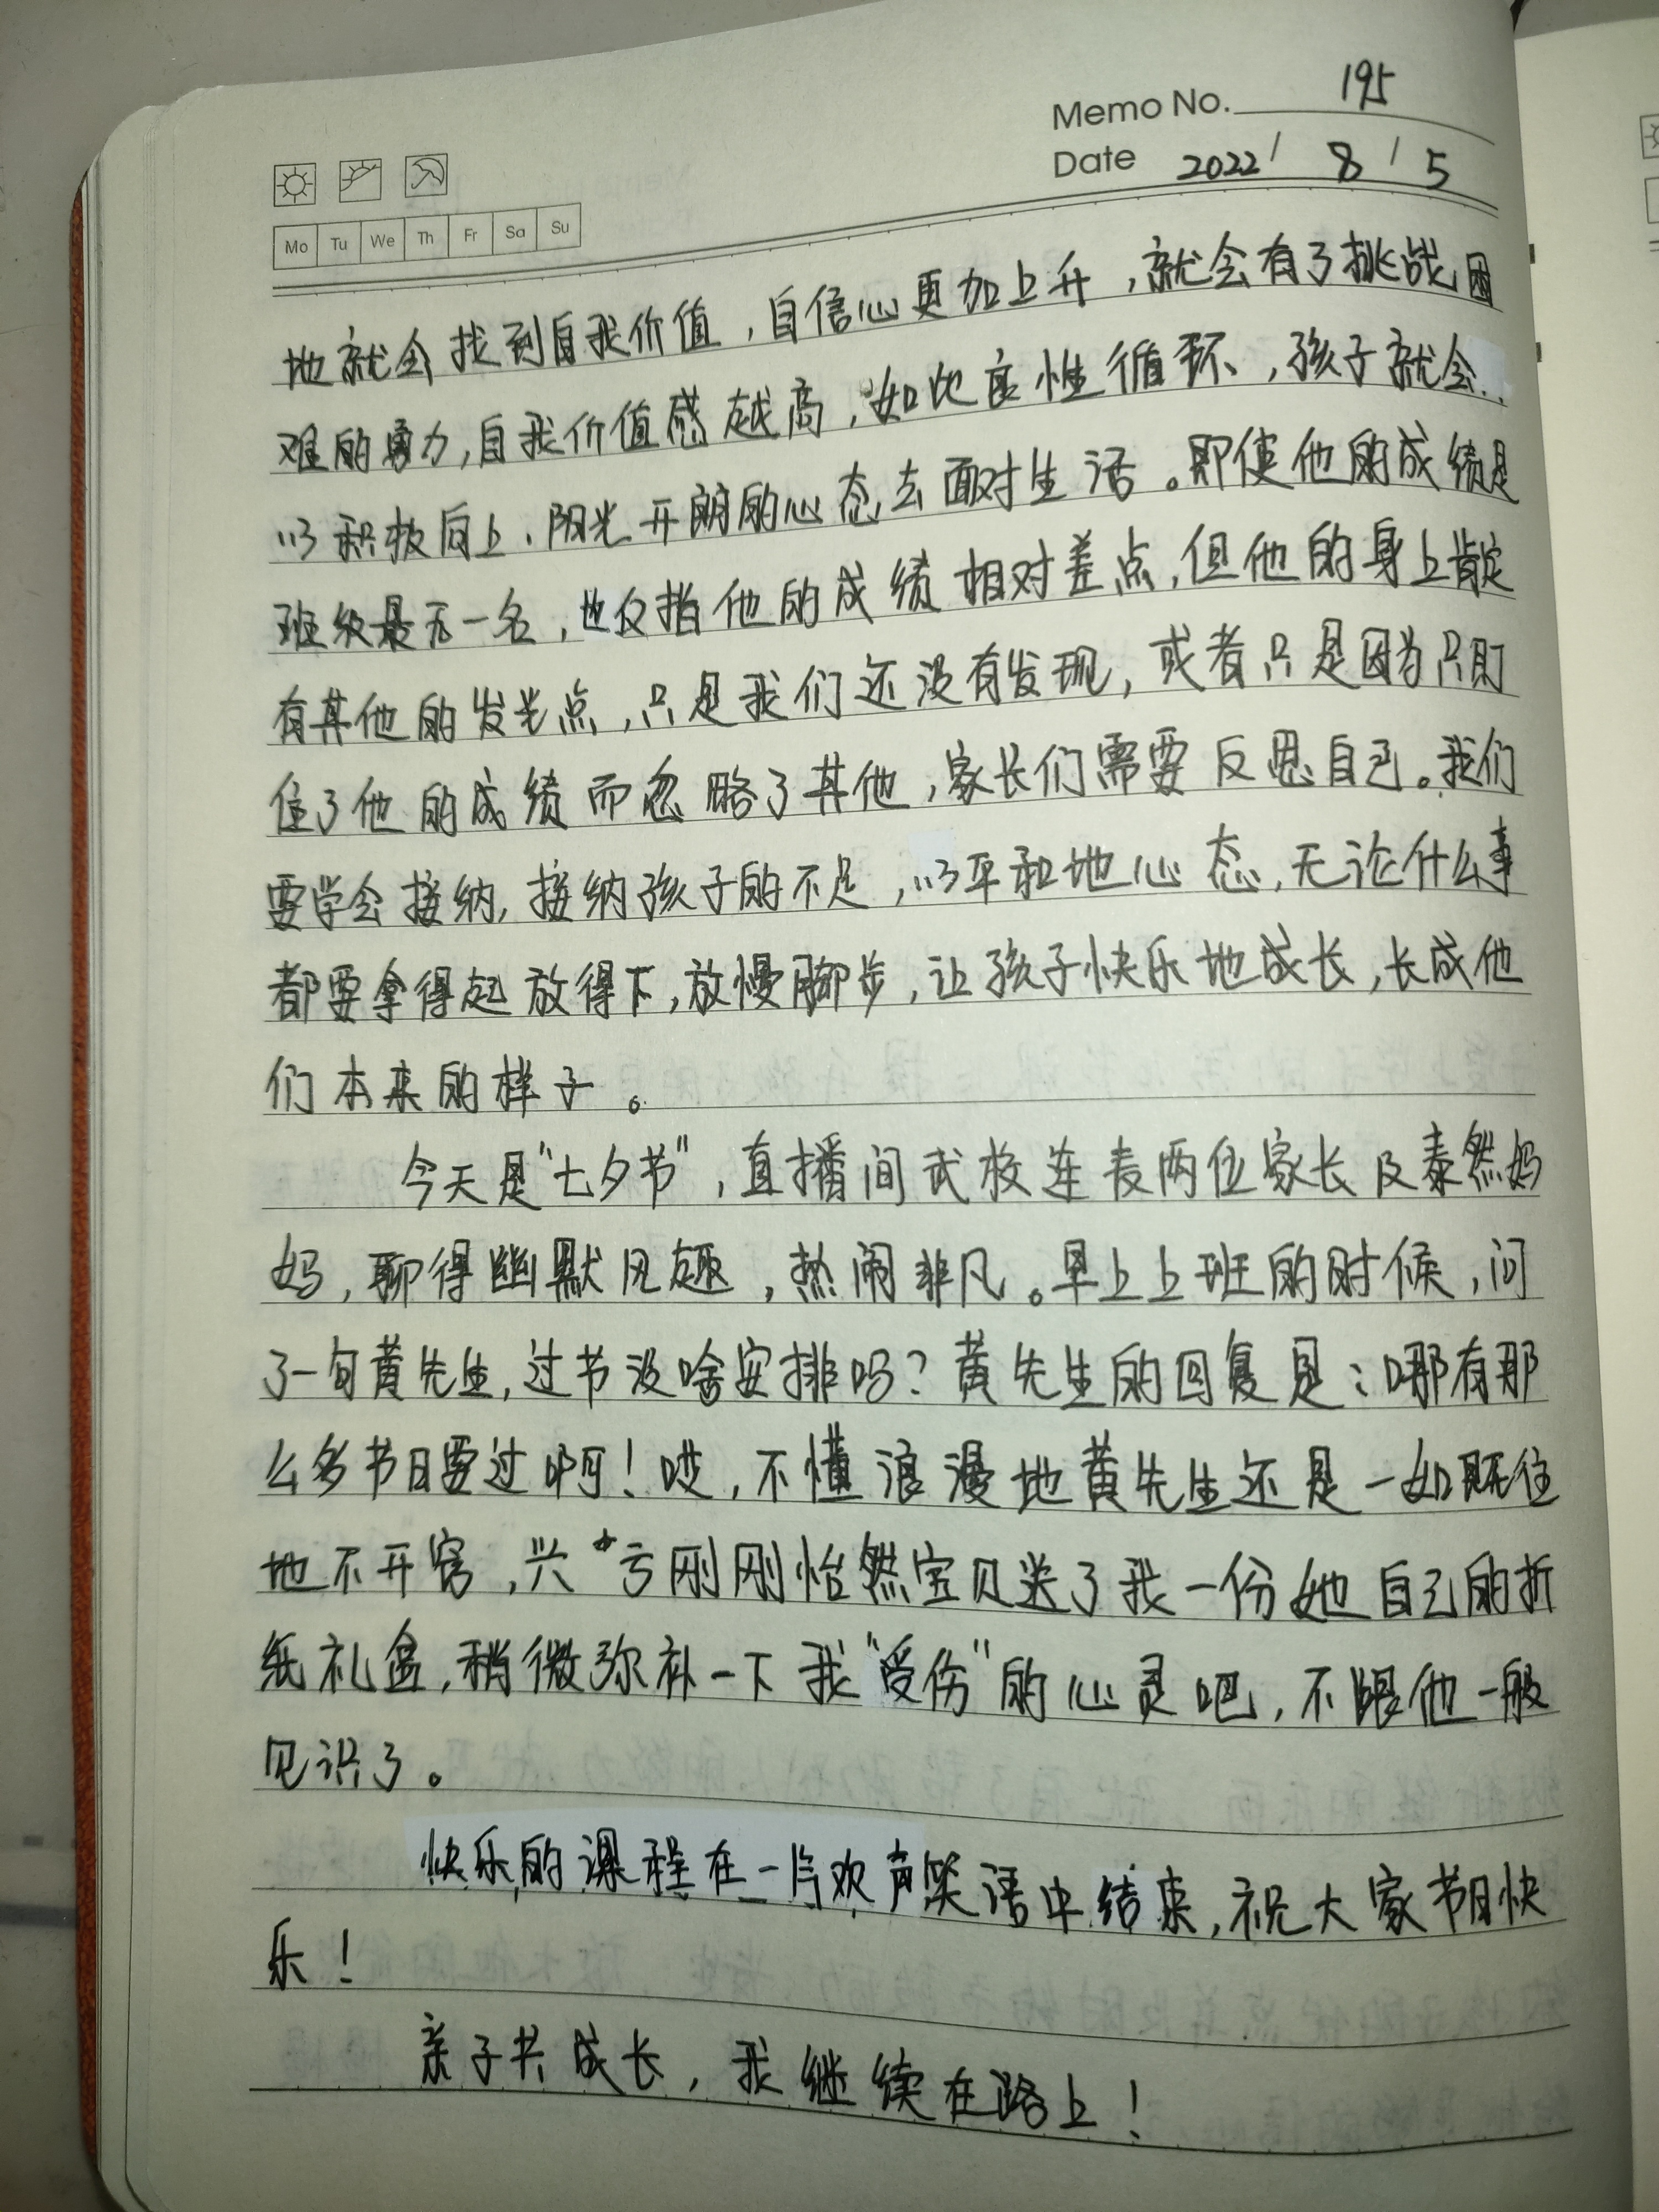 Memo No. 195
Date 2022 / 8 / 5
Mo Tu We Th Fr Sa Su
地就会找到自我价值，自信心更加上升，就会有了挑战困
难的勇力，自我价值感越高，如此良性循环，孩子就会
以积极向上、阳光开朗的心态去面对生活。即使他的成绩是
班级最后一名，也仅指他的成绩相对差点，但他的身上肯定
有其他的发光点，只是我们还没有发现，或者只是因为只盯
住了他的成绩而忽略了其他，家长们需要反思自己。我们
要学会接纳，接纳孩子的不足，以平和地心态，无论什么事
都要拿得起放得下，放慢脚步，让孩子快乐地成长，长成他
们本来的样子。
今天是“七夕节”，直播间武校连麦两位家长及泰然妈
妈，聊得幽默风趣，热闹非凡。早上上班的时候，问
了一句黄先生，过节没啥安排吗？黄先生的回复是：哪有那
么多节日要过啊！哎，不懂浪漫地黄先生还是一如既往
地不开窍，兴亏刚刚怡然宝贝送了我一份她自己的折
纸礼盒，稍微弥补一下我“受伤”的心灵吧，不跟他一般
见识了。
快乐的课程在一片欢声笑语中结束，祝大家节日快
乐！
亲子共成长，我继续在路上！